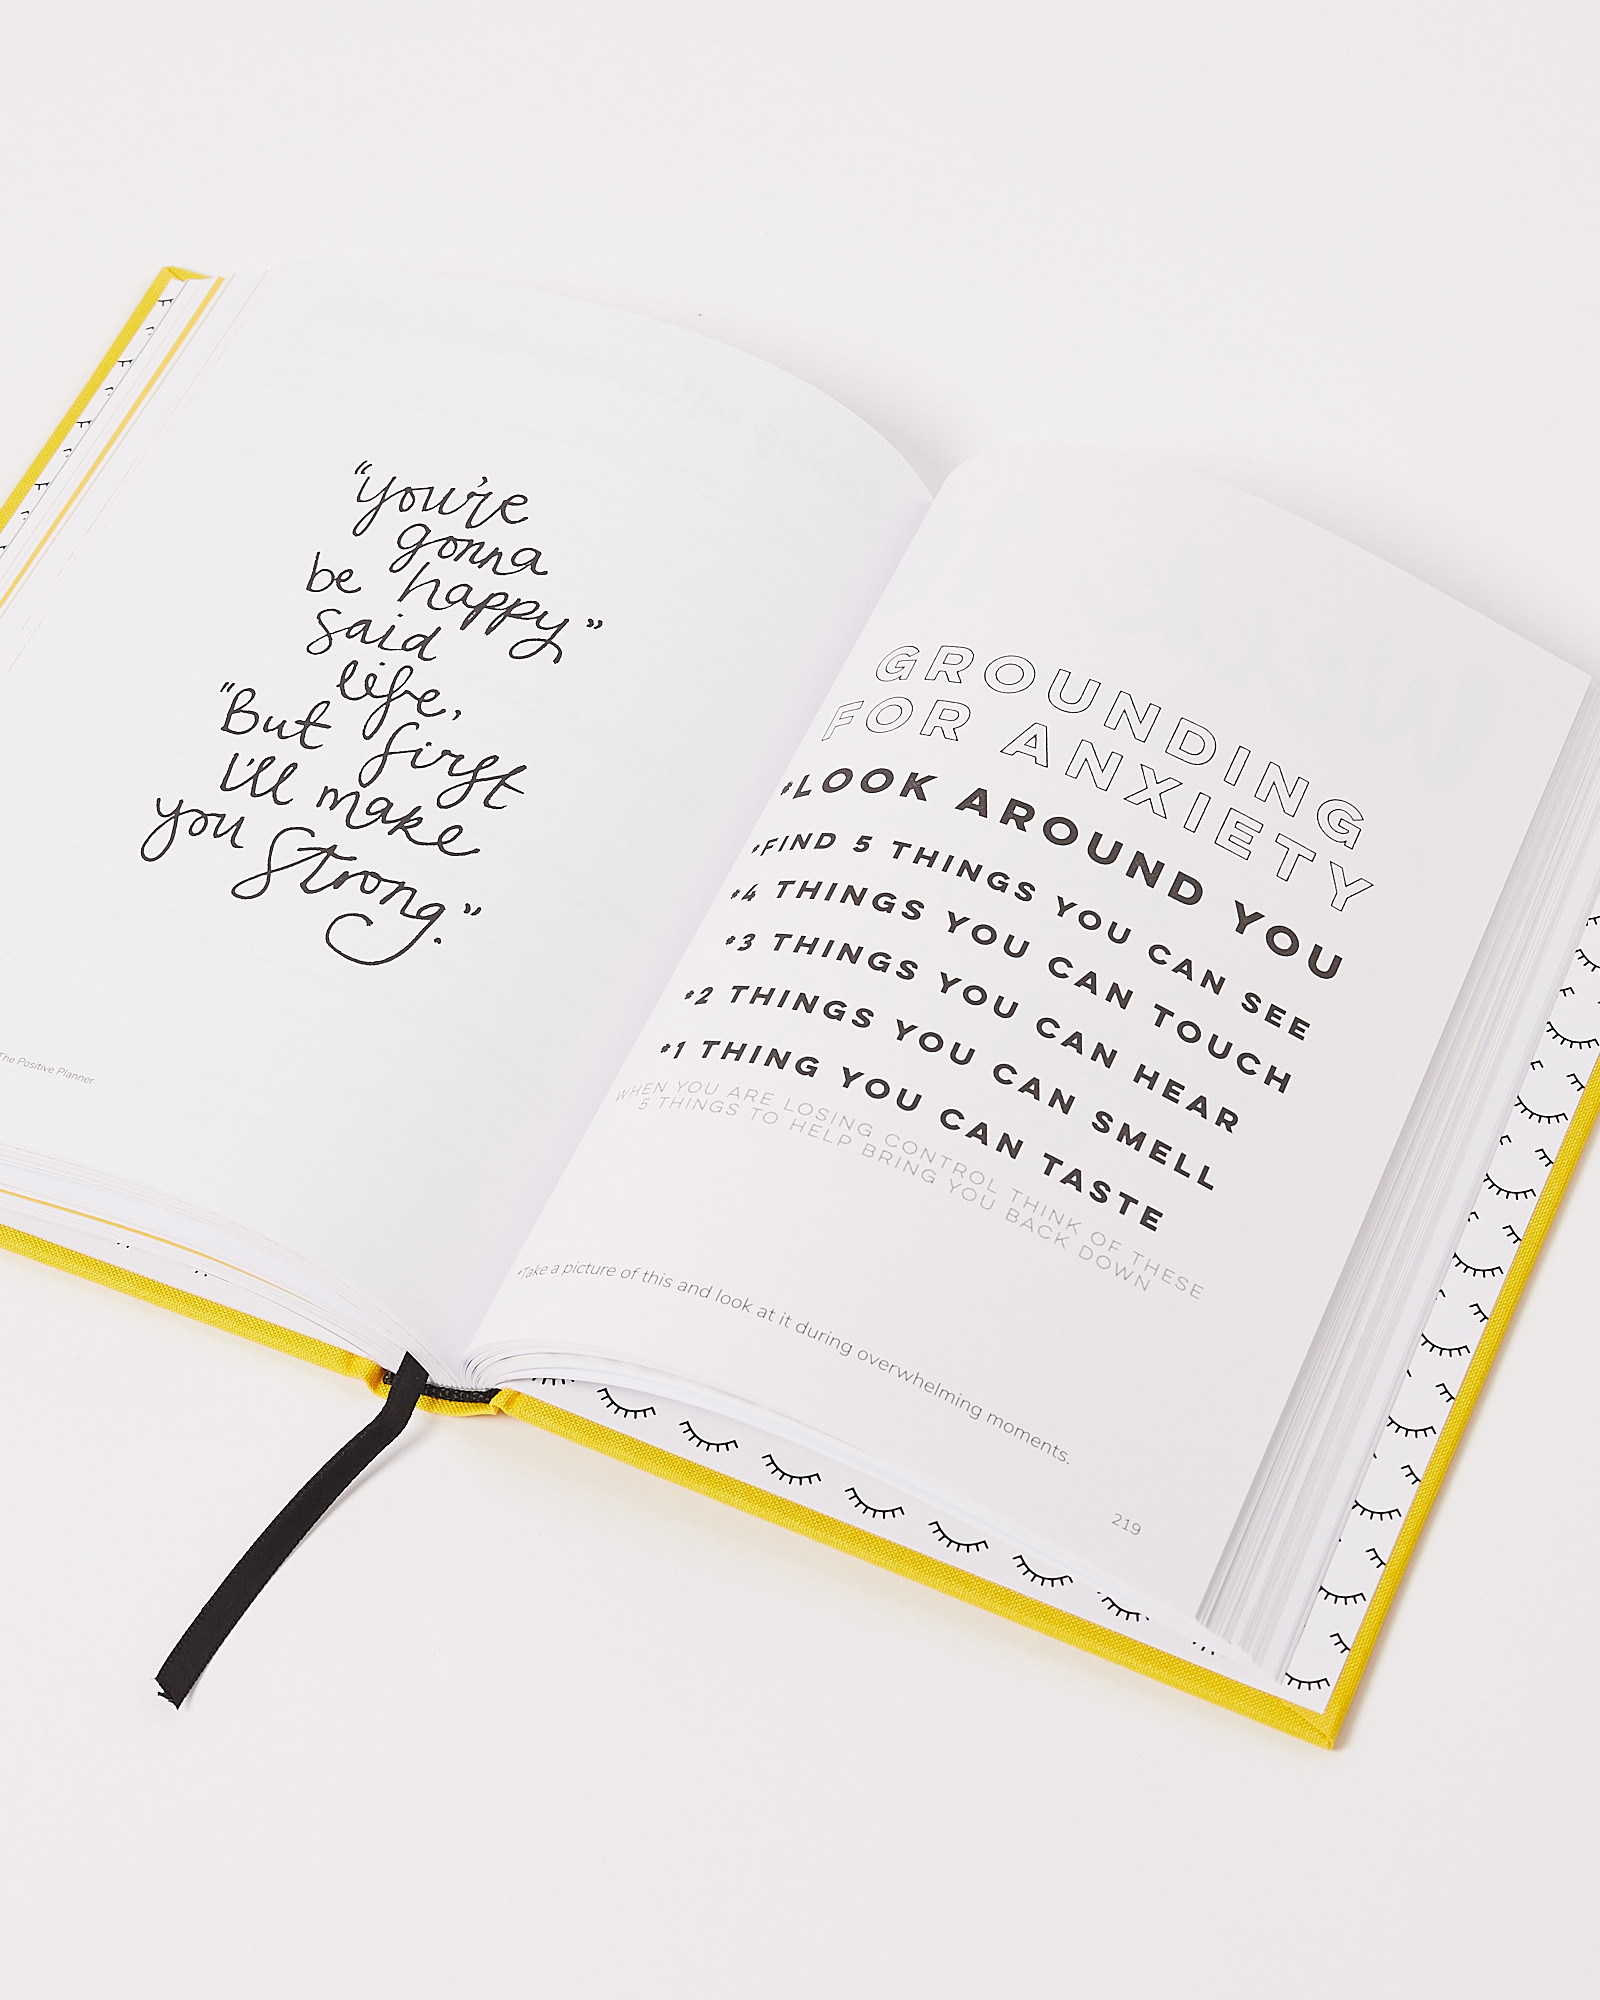 "you're
gonna
be happy"
said
life,
"But first
I'll make
you strong."
The Positive Planner
GROUNDING
FOR ANXIETY
•LOOK AROUND YOU
•FIND 5 THINGS YOU CAN SEE
•4 THINGS YOU CAN TOUCH
•3 THINGS YOU CAN HEAR
•2 THINGS YOU CAN SMELL
•1 THING YOU CAN TASTE
WHEN YOU ARE LOSING CONTROL THINK OF THESE
5 THINGS TO HELP BRING YOU BACK DOWN
*Take a picture of this and look at it during overwhelming moments.
219